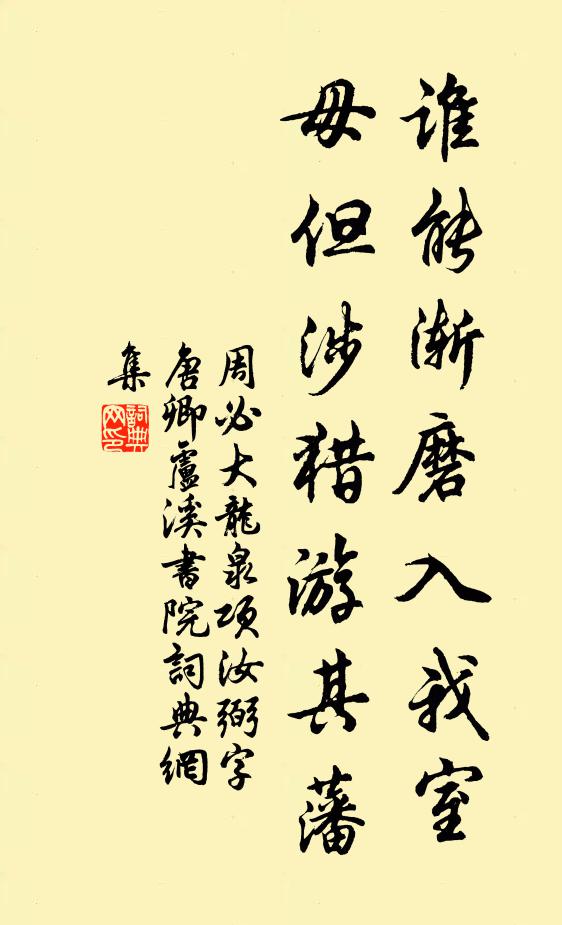 谁能渐磨入我室
毋但涉猎游其藩
周必大龍泉项汝弼字
唐卿盧溪書院詞典網
集
詞典
网印